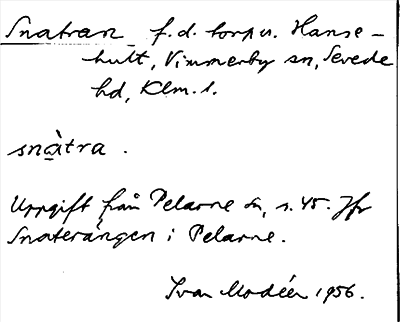 Snatran f.d. torp u. Hanse-
hult, Vimmerby sn, Sevede
hd, Klm. l.
snàtra.
Uppgift från Pelarne sn, s. 45. Jfr
Snaterängen i Pelarne.
Ivar Modéer 1956.